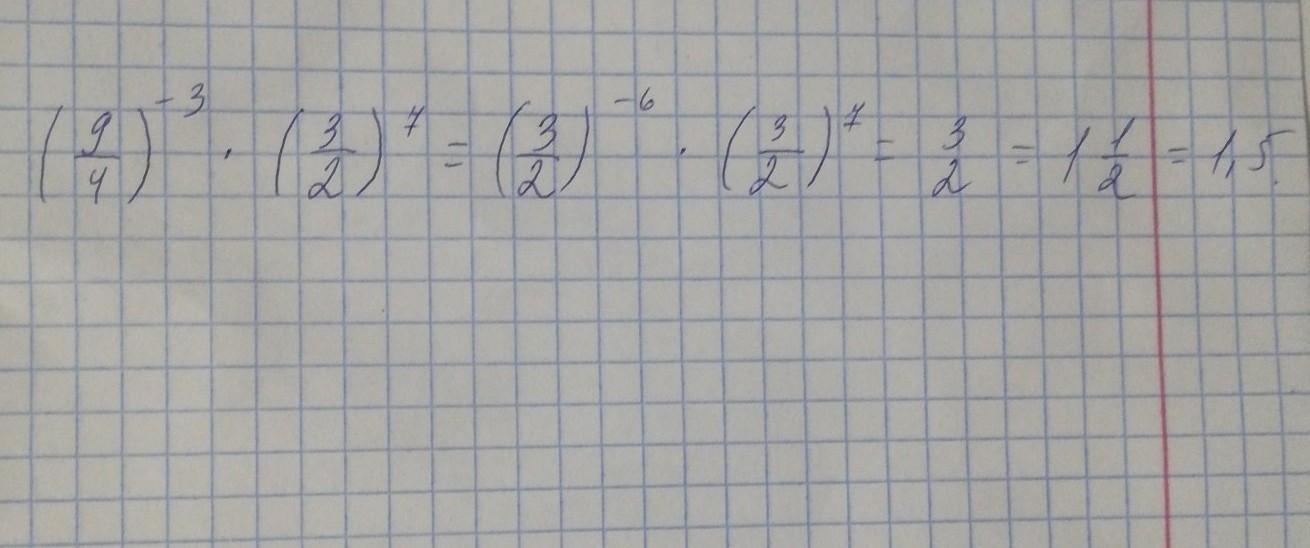 (9/4)^-3 · (3/2)^7 = (3/2)^-6 · (3/2)^7 = 3/2 = 1 1/2 = 1,5.